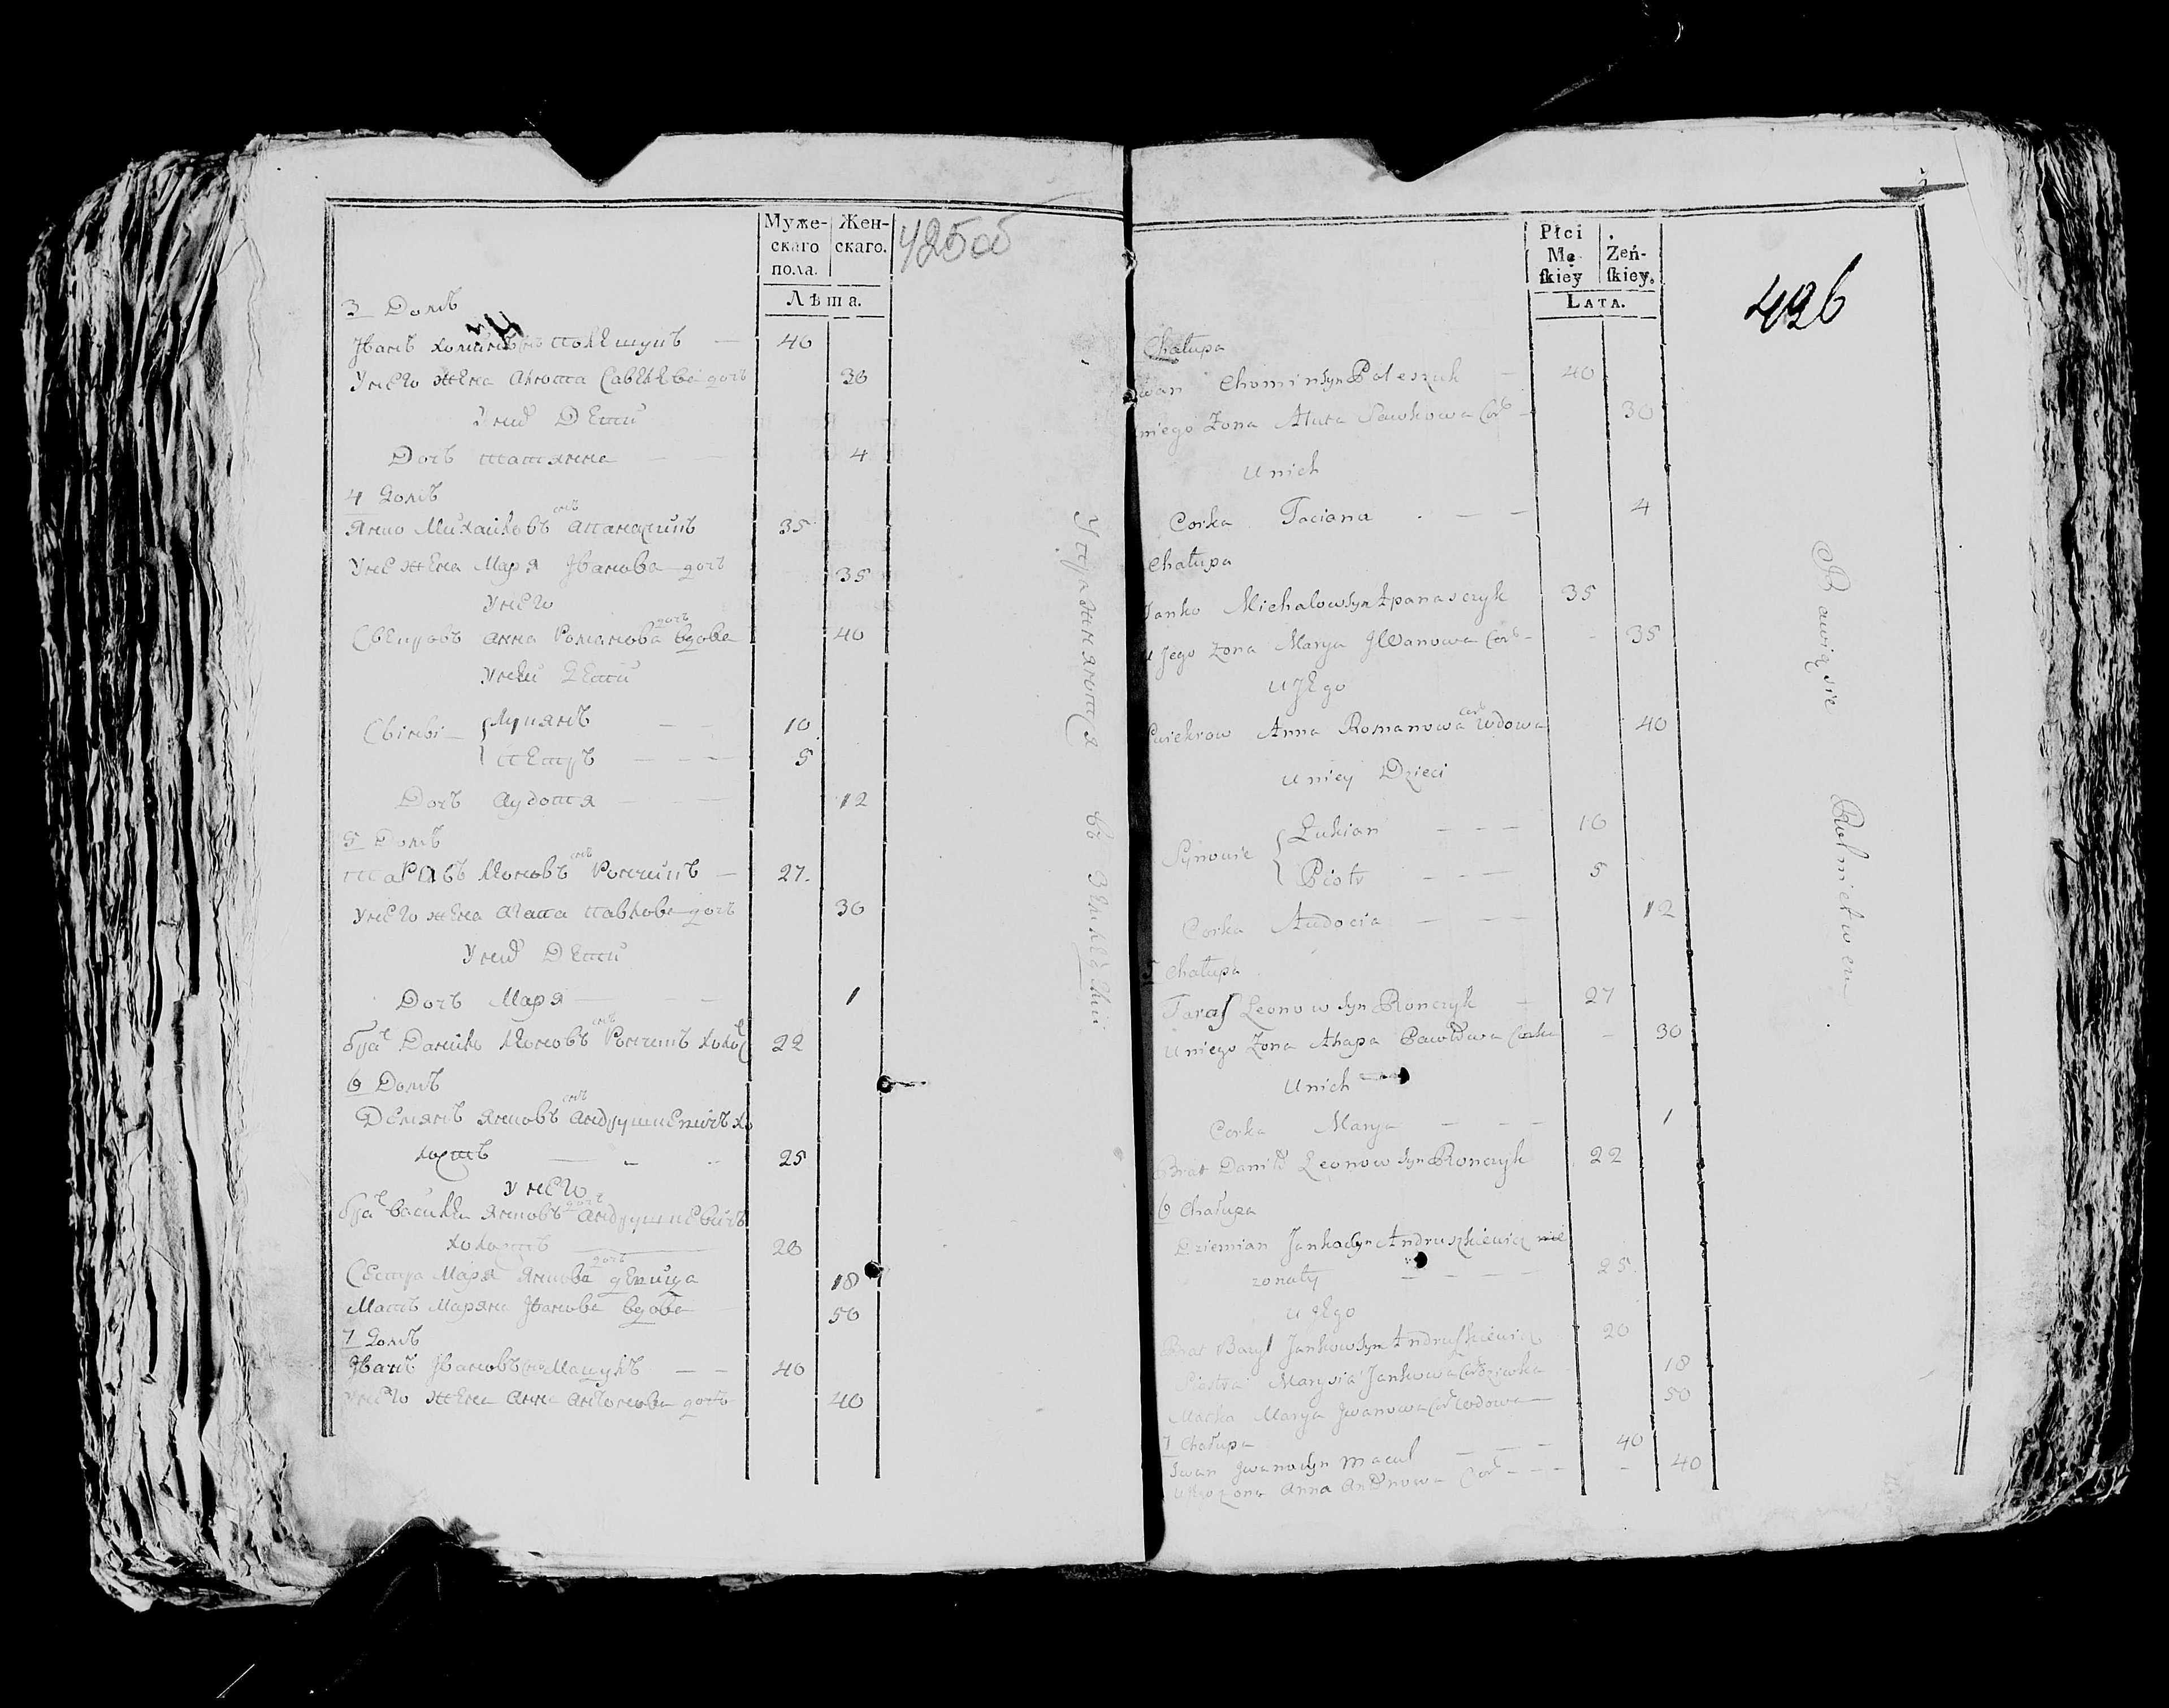 Муже-
скаго
пола.
Жен-
скаго.
Лѣта.
425об
3 Домъ
Иванъ Хоминъ снъ Полешукъ — 40
У него жена Анюта Савкова дочь 30
У нихъ Дети
Дочь Татянна — — 4
4 Домъ
Янко Михайловъ снъ Апанащикъ 35
У не жена Маря Иванова дочь 35
У него
Свекровь Анна Романова дочь вдова 40
У ней Дети
Сыны Лукянъ — — 10
Петръ — — — 5
Дочь Аудотя — — — 12
5 Домъ
Тарасъ Леоновъ снъ Рончикъ — 27
У него жена Агапа Павлова дочь 30
У нихъ Дети
Дочь Маря — — — 1
братъ Данило Леоновъ снъ Рончикъ холос 22
6 Домъ
Демянъ Янковъ снъ Андрушкевичъ хо
лостъ — — 25
У него
братъ Василь Янковъ Андрушкевичъ
холостъ — 20
Сестра Маря Янкова дочь девица 18
Мать Маряна Иванова вдова 50
7 Домъ
Иванъ Ивановъ снъ Мацукъ — — 40
У него жена Анна Антонова дочь 40
Упражняются въ Земледелии
Płci
Mę-
skiey
Żeń-
skiey.
Lata.
426
Chałupa
Iwan Chomin syn Poleszuk — 40
u niego Żona Anuta Sawkowa Cor — 30
u nich
Corka Taciana . — — 4
Chałupa
Janko Michałow syn Apanasczyk 35
u Jego żona Marya Jwanowa Cor — 35
u Jego
Swiekrow Anna Romanowa Cor wdowa 40
u niey Dzieci
Synowie Łukian — — — 10
Piotr — — — 5
Corka Audocia — — — 12
5 Chałupa
Taras Leonow syn Ronczyk — 27
u niego Żona Ahapa Pawłowa Corka — 30
u nich
Corka Marya — — — 1
Brat Daniło Leonow syn Ronczyk 22
6 Chałupa
Dziemian Jankow syn Andruszkiewicz nie
żonaty — — — — 25
u Jego
Brat Bazyl Jankow syn Andruszkiewicz 20
Siostra Marysia Jankowa Cor dziewka 18
Matka Marya Jwanowa Cor wdowa — 50
7 Chałupa
Iwan Jwanow syn Macuk — — — 40
u Jego żona Anna Antonowa Cor — — — 40
Bawią sie Rolnictwem